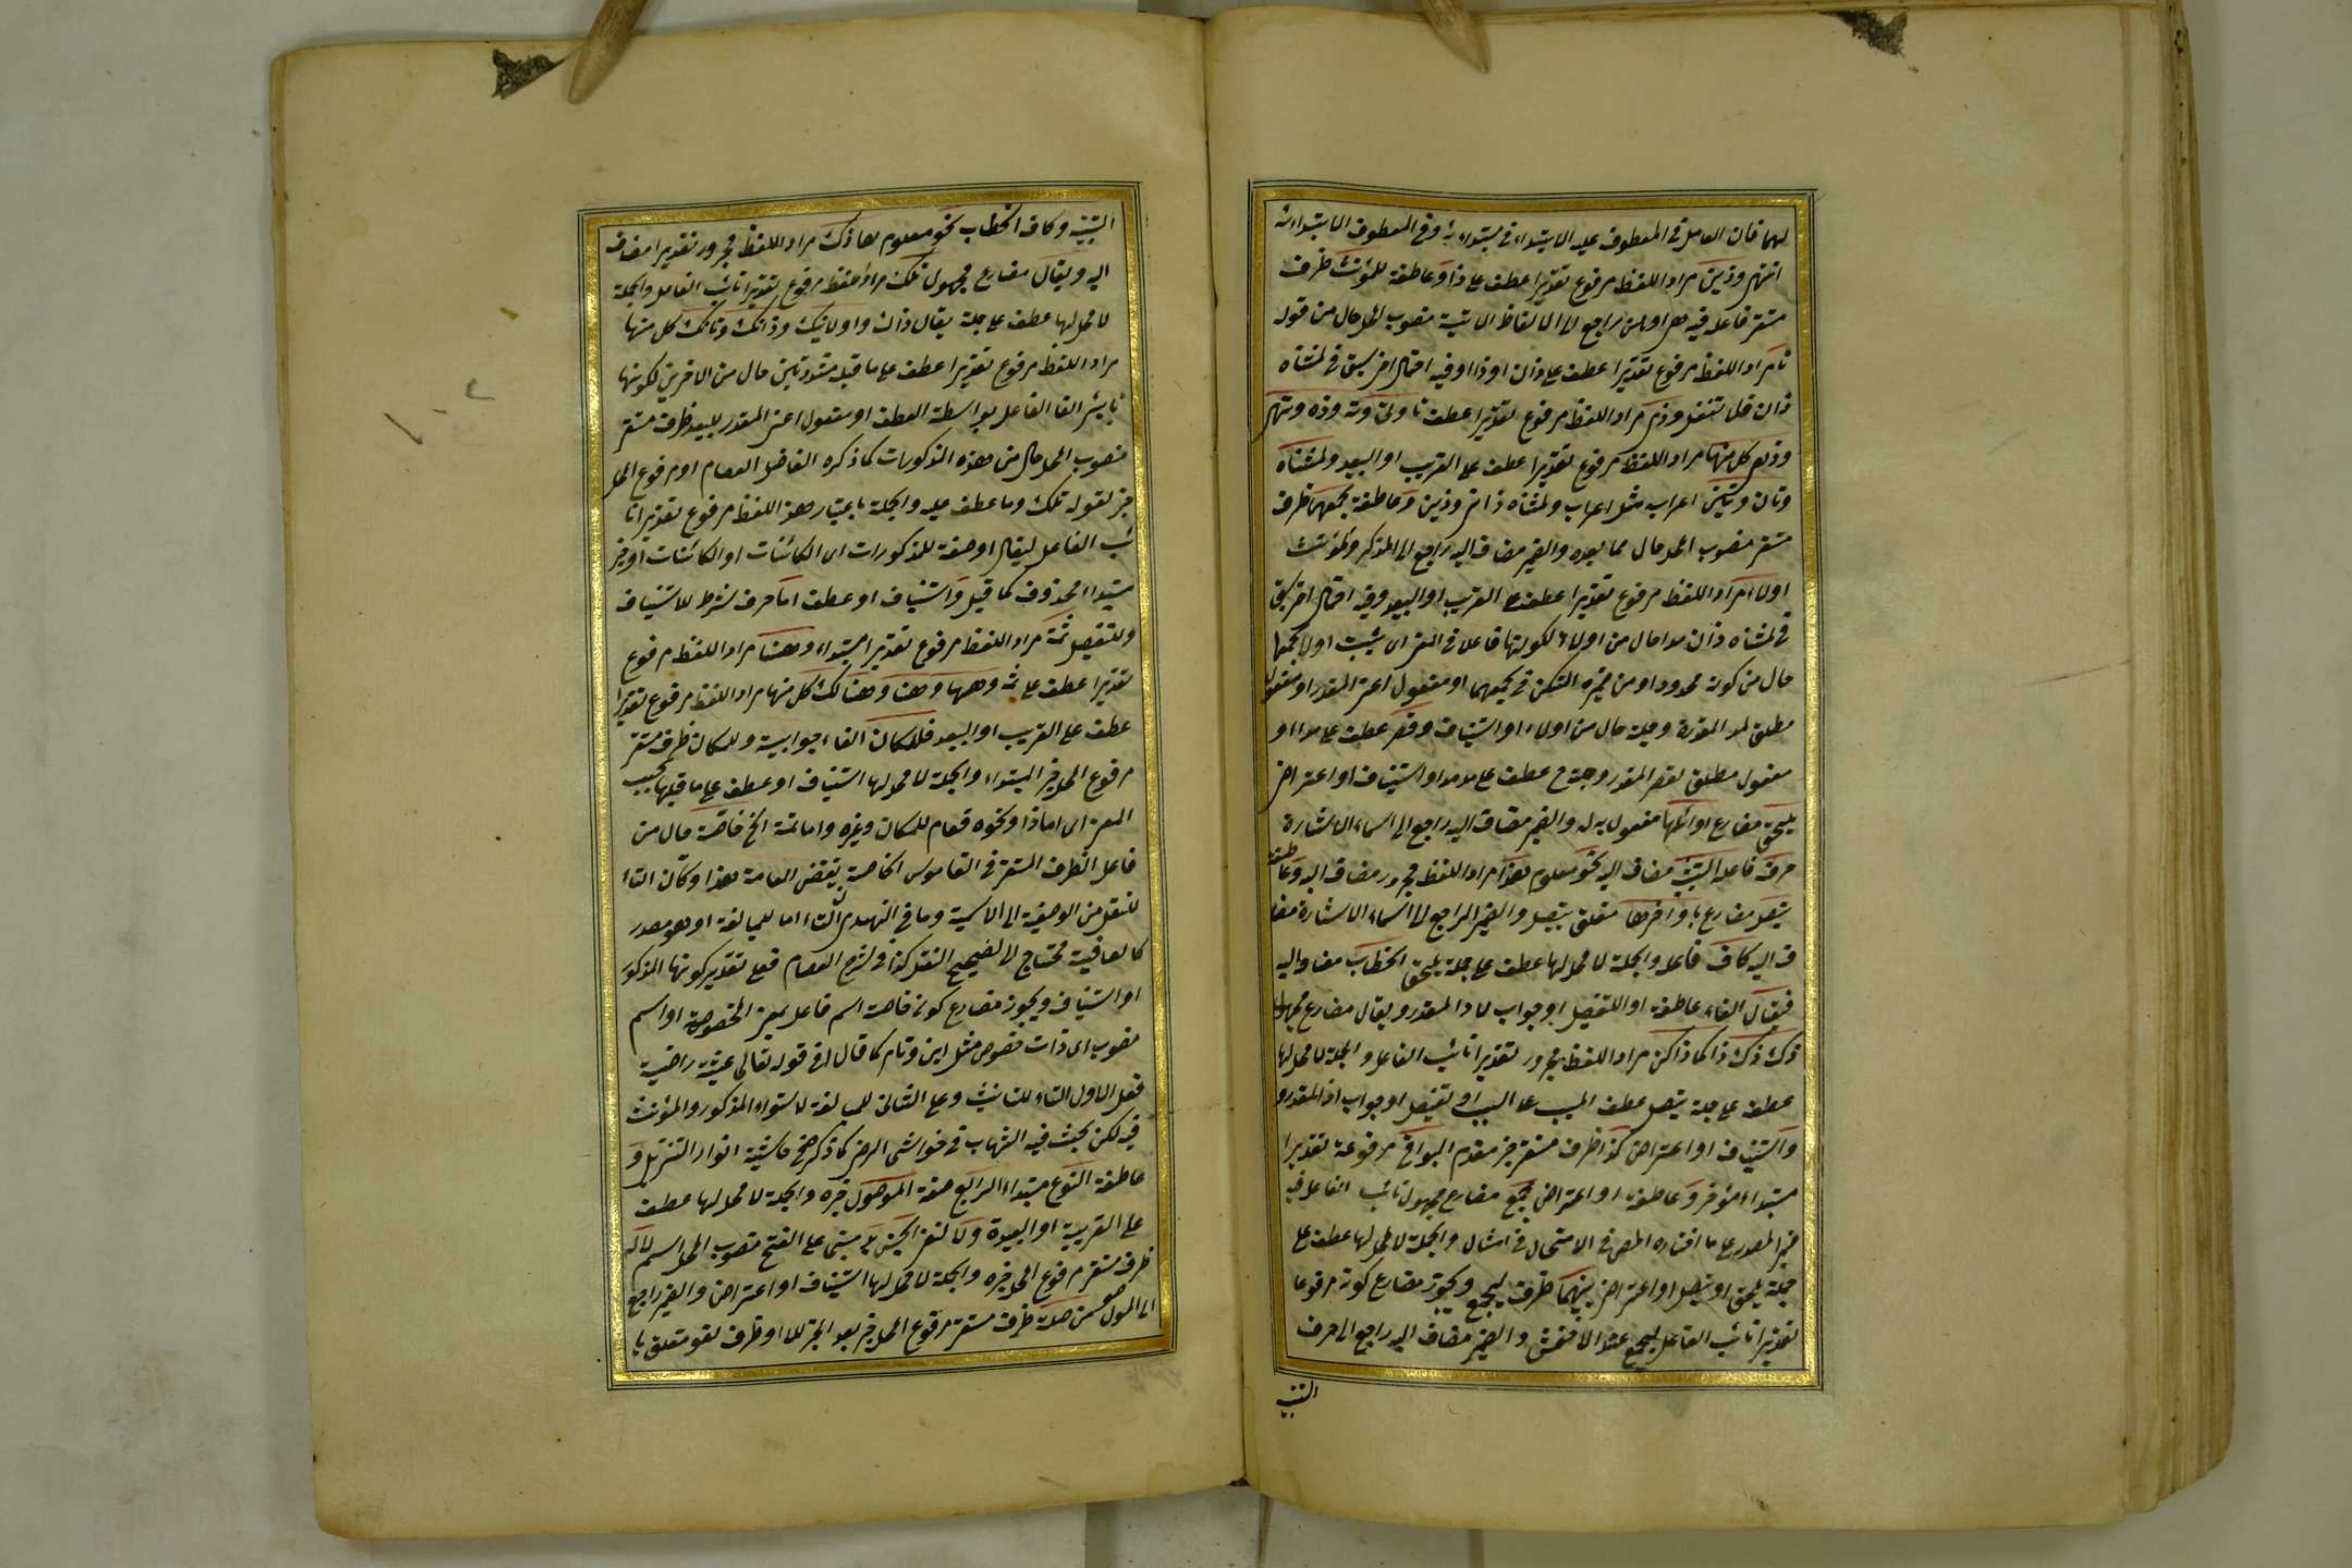 لهما فان العامل فى المعطوف عليه الابتداء فى مبتداءيته وفى المعطوف الابتداءية
انتهى وذين مراد اللفظ مرفوع تقديرا عطف على ذا وعاطفة للمؤنث ظرف
مستقر فاعله فيه هى راجع الى الالفاظ الاتية منصوب المحل حال من قوله
تا مراد اللفظ مرفوع تقديرا عطف على ذان او ذا وفيه احتمال اخر سبق فى لمثناه
ذان فلا تغفل وذى مراد اللفظ مرفوع تقديرا عطف تا وتى وته وذه وتهى
وذهى كل منها مراد اللفظ مرفوع تقديرا عطف على القريب او البعيد ولمثناه
وتان وتين اعرابه مثل اعراب ولمثناه ذان وذين وعاطفة لجمعهما ظرف
مستقر منصوب المحل حال مما بعده والضمير مضاف اليه راجع الى المذكر والمؤنث
اولاء مراد اللفظ مرفوع تقديرا عطف على القريب او البعيد وفيه احتمال اخر سبق
فى لمثناه ذان مدا حال من اولاء لكونها فاعلا فى المعنى اى يثبت اولاء لجمعهما
حال من كونه ممدودا ومن ضميره المستكن فى لجمعهما او مفعول اعنى المقدر او مفعول
مطلق لمد المقدرة وجملة حال من اولاء او استيناف وقصر عطف على مدا او
مفعول مطلق لقصر المقدر وجملة ح عطف على مد مدا واستيناف او اعتراض
يلحق مضارع اوائلها مفعول به له والضمير مضاف اليه راجع الى اسماء الاشارة
حرف فاعله التنبيه مضاف اليه نحو معلوم هذا مراد اللفظ مجرور مضاف اليه وعاطفة
يتصل مضارع باواخرها متعلق بيتصل والضمير الراجع الى اسماء الاشارة مضا
ف اليه كاف فاعله والجملة لا محل لها عطف على جملة يلحق الخطاب مضاف اليه
فيقال الفاء عاطفة او للتفصيل او جواب لاذا المقدر ويقال مضارع مجهول
ذاك ذاك ذاكما ذاكن مراد اللفظ مجرور تقديرا نائب الفاعل والجملة لا محل لها
عطف على جملة يتصل عطف المسبب على السبب او تفصيل او جواب اذا المقدر و
واستيناف او اعتراض كذا ظرف مستقر خبر مقدم البواقى مرفوعة تقديرا
مبتداء مؤخر وعاطفة او اعتراض يجمع مضارع مجهول نائب الفاعل فيه
ضمير المصدر على ما اختاره المص فى الامتحان فى امثال والجملة لا محل لها عطف على
جملة يلحق او يتصل او اعتراض بينهما ظرف ليجمع ويجوز مضارع كونه مرفوعا
تقديرا نائب الفاعل ليجمع عند الاخفش والضمير مضاف اليه راجع الى حرف
التنبيه
التنبيه وكاف الخطاب نحو معلوم هاذاك مراد اللفظ مجرور تقديرا مضاف
اليه ويقال مضارع مجهول تلك مراد لفظ مرفوع تقديرا نائب الفاعل والجملة
لا محل لها عطف على جملة يقال ذاك واولئك وذانك وتانك كل منها
مراد اللفظ مرفوع تقديرا عطف على ما قبله مشددتين حال من الاخرين لكونها
نايبى الفاعل بواسطة العطف او مفعول اعنى المقدر للبعيد ظرف مستقر
منصوب المحل حال من هذه المذكورات كما ذكره الفاضل العصام او مرفوع المحل
خبر لقوله تلك وما عطف عليه والجملة باعتبار هذا اللفظ مرفوع تقديرا نا
ئب الفاعل ليقال او صفة للمذكورات اى الكائنات او الكائنات او خبر
مبتداء محذوف كما قيل واستيناف او عطف اما حرف شرط للاستيناف
وللتفصيل ثمة مراد اللفظ مرفوع تقديرا مبتداء وهنا مراد اللفظ مرفوع
تقديرا عطف على ثمة وههنا وهنا وهنالك كل منها مراد اللفظ مرفوع تقديرا
عطف على القريب او البعيد فللمكان الفاء جوابية وللمكان ظرف مستقر
مرفوع المحل خبر المبتداء والجملة لا محل لها استيناف او عطف على ما قبلها بحسب
المعنى اى اما ذا ونحوه فعام للمكان وغيره واما ثمة الخ خاصة حال من
فاعل الظرف المستقر فى القاموس الخاصة نقيض العامة هذا وكان التاء
للنقل من الوصفية الى الاسمية وما فى النهدى ان التاء اما للمبالغة او هو مصدر
كالعافية محتاج الى تصحيح النقل كذا فى شرح العصام فعلى تقدير كونها المذكور
او استيناف ويجوز مضارع كونه خاصة اسم فاعل بمعنى المخصوصة او اسم
منصوب اى ذات خصوص مثل لابن وتام كما قال فى قوله تعالى عيشة راضية
فعلى الاول التاء للتانيث وعلى الثانى للمبالغة لاستواء المذكور والمؤنث
فيه لكن بحث فيه الشهاب فى حواشى الرضى كما ذكر فى حاشية انوار التنزيل و
عاطفة النوع مبتداء الرابع صفة الموصول خبره والجملة لا محل لها عطف
على القريبة او البعيدة ولا لنفى الجنس بد مبنى على الفتح منصوب المحل اسم لا له
ظرف مستقر مرفوع المحل خبره والجملة لا محل لها استيناف او اعتراض والضمير راجع
الى الموصول من صلة ظرف مستقر مرفوع المحل خبر بعد الخبر للا او ظرف لغو متعلق با